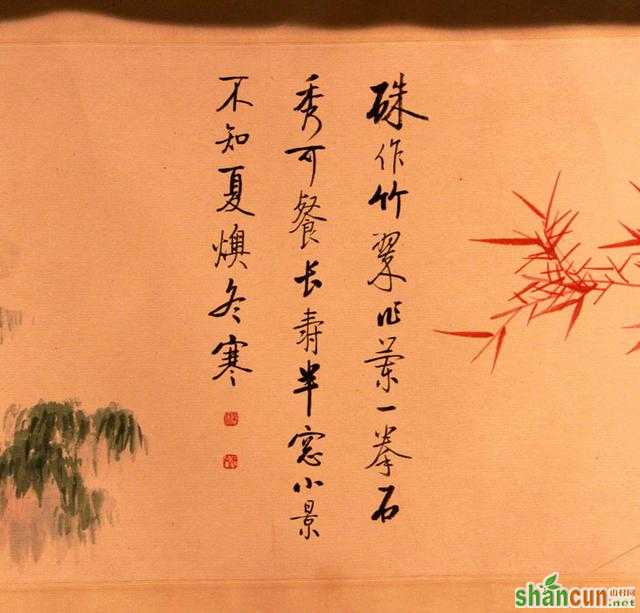 硃作竹翠作叶一拳石
秀可餐长寿半窓小景
不知夏燠冬寒
shancun
山村网
.net